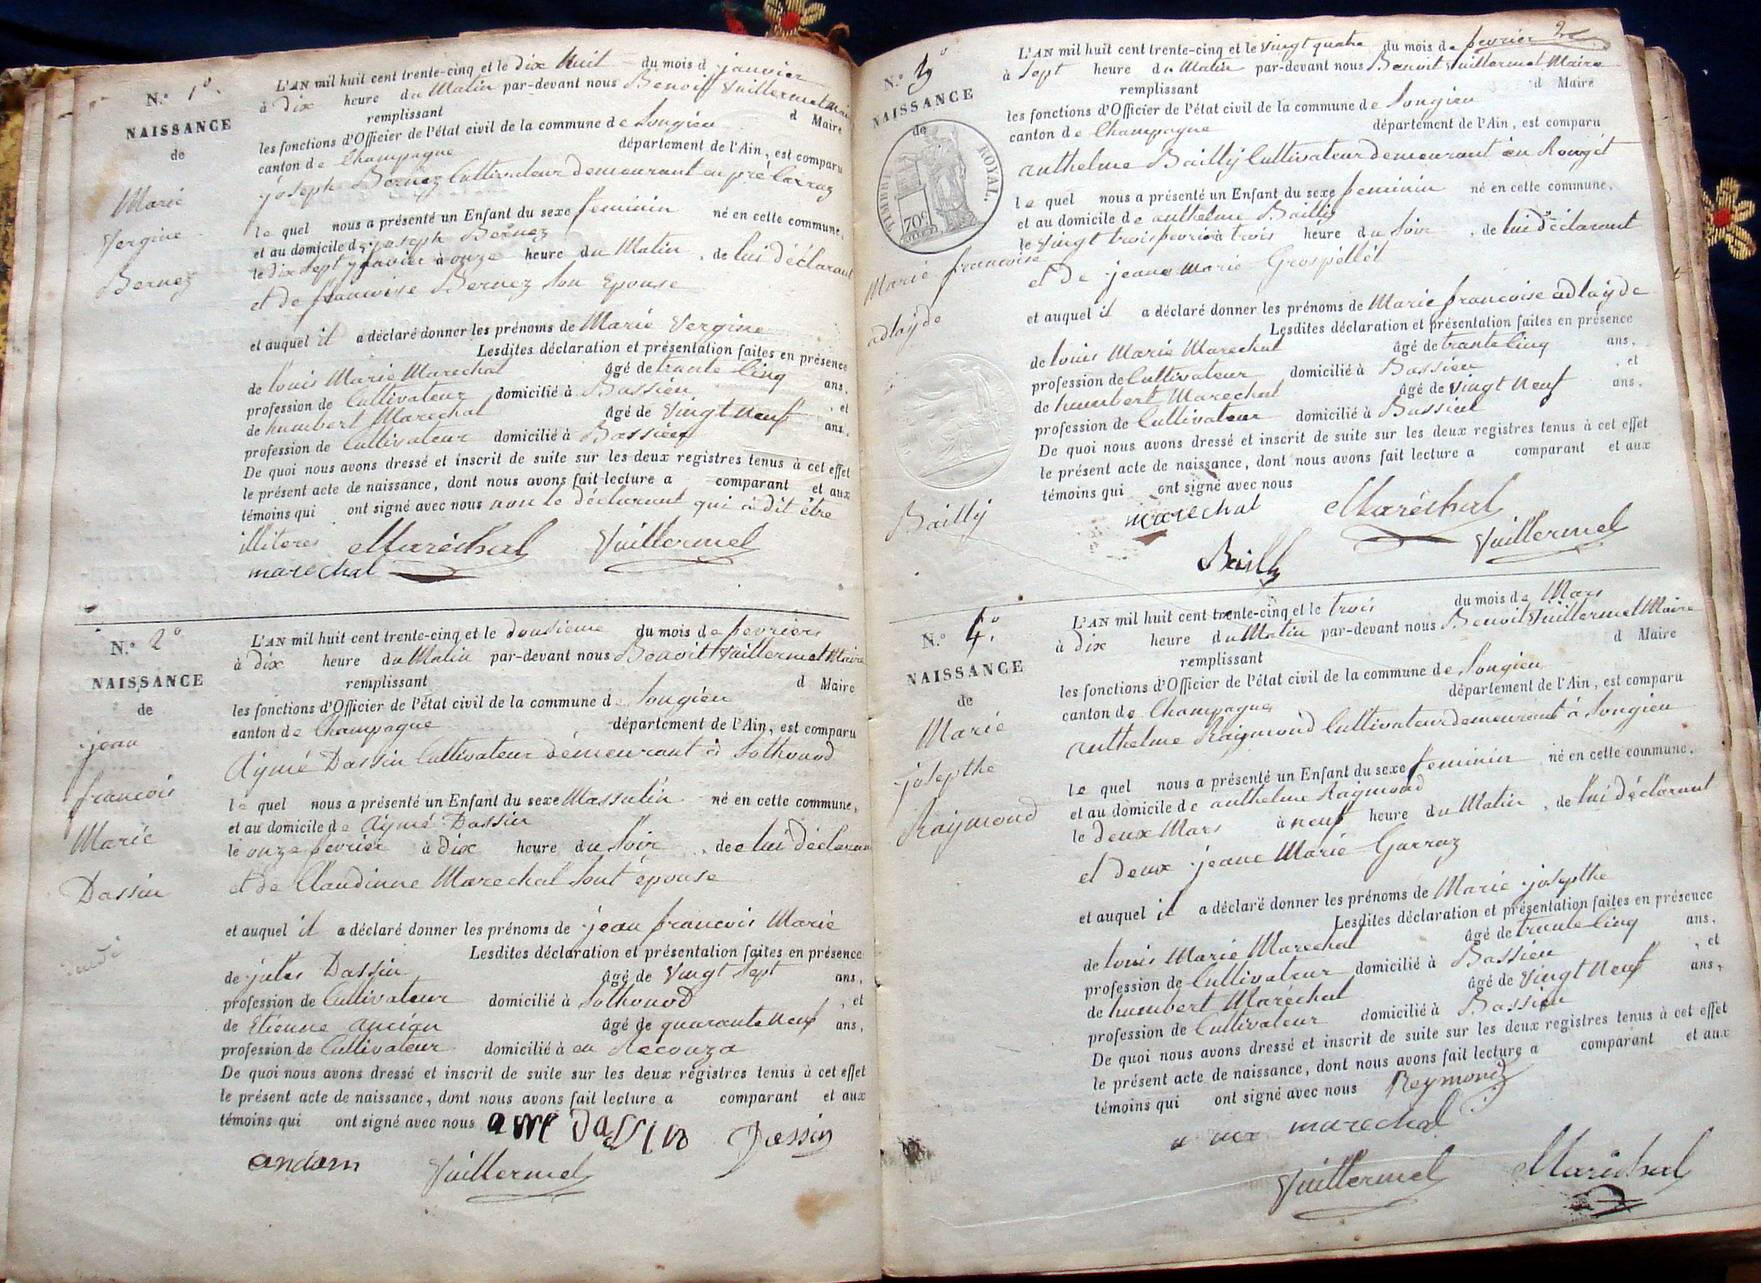 N.º 1.º
NAISSANCE
de
Marie
Vergine
Bernez
L'AN mil huit cent trente-cinq et le dix huit du mois d janvier
à dix heure du Matin par-devant nous Benoit Vuillermet
remplissant d Maire
les fonctions d'Officier de l'état civil de la commune de Songieu
canton de Champagne département de l'Ain, est comparu
joseph Bernez Cultivateur demeurant en pré Carraz
le quel nous a présenté un Enfant du sexe feminin né en cette commune,
et au domicile de joseph Bernez
le dix sept janvier à onze heure du Matin, de lui déclarant
et de françoise Bernez son Epouse
et auquel il a déclaré donner les prénoms de Marie Vergine
Lesdites déclaration et présentation faites en présence
de louis Marie Marechal âgé de trante Cinq ans,
profession de Cultivateur domicilié à Bassieu, et
de humbert Marechal âgé de vingt Neuf ans,
profession de Cultivateur domicilié à Bassieu
De quoi nous avons dressé et inscrit de suite sur les deux registres tenus à cet effet
le présent acte de naissance, dont nous avons fait lecture a comparant et aux
témoins qui ont signé avec nous non le déclarant qui à dit être
illiteres Maréchal Vuillermet
marechal
N.º 2º
NAISSANCE
de
jean
francois
Marie
Dassin
L'AN mil huit cent trente-cinq et le dousieme du mois de fevriers
à dix heure du Matin par-devant nous Benoit Vuillermet Maire
remplissant d Maire
les fonctions d'Officier de l'état civil de la commune d Songieu
canton de Champagne département de l'Ain, est comparu
Aymé Dassin Cultivateur démeurant à Sothonod
le quel nous a présenté un Enfant du sexe Massulin né en cette commune,
et au domicile de Aymé Dassin
le onze fevrier à dix heure du soir, de lui déclarant
et de Claudinne Marechal sont épouse
et auquel il a déclaré donner les prénoms de jean francois Marie
Lesdites déclaration et présentation faites en présence
de jules Dassin âgé de vingt sept ans,
profession de Cultivateur domicilié à Sothonod, et
de Etienne ancian âgé de quarante neuf ans,
profession de Cultivateur domicilié à en Recouza
De quoi nous avons dressé et inscrit de suite sur les deux registres tenus à cet effet
le présent acte de naissance, dont nous avons fait lecture a comparant et aux
témoins qui ont signé avec nous Dassin Dassin
Vuillermet
N.º 3º
NAISSANCE
de
TIMBRE ROYAL.
70c
Marie francoise
adlayde
Bailly
L'AN mil huit cent trente-cinq et le vingt quatre du mois de fevrier
à sept heure du Matin par-devant nous Benoit Vuillermet Maire
remplissant d Maire
les fonctions d'Officier de l'état civil de la commune de Songieu
canton de Champagne département de l'Ain, est comparu
anthelme Bailly Cultivateur demeurant en Rougit
le quel nous a présenté un Enfant du sexe feminin né en cette commune,
et au domicile de anthelme Bailly
le vingt trois fevrier à trois heure du soir, de lui déclarant
et de jeane Marie Grospellet
et auquel il a déclaré donner les prénoms de Marie francoise adlayde
Lesdites déclaration et présentation faites en présence
de louis Marie Marechal âgé de trante Cinq ans,
profession de Cultivateur domicilié à Bassieu, et
de humbert Marechal âgé de vingt Neuf ans,
profession de Cultivateur domicilié à Bassieu
De quoi nous avons dressé et inscrit de suite sur les deux registres tenus à cet effet
le présent acte de naissance, dont nous avons fait lecture a comparant et aux
témoins qui ont signé avec nous
marechal Maréchal
Bailly Vuillermet
N.º 4.º
NAISSANCE
de
Marie
josepthe
Raymond
L'AN mil huit cent trente-cinq et le trois du mois de Mars
à dix heure du Matin par-devant nous Benoit Vuillermet Maire
remplissant d Maire
les fonctions d'Officier de l'état civil de la commune de Songieu
canton de Champagne département de l'Ain, est comparu
anthelme Raymond Cultivateur demeurant à Songieu
le quel nous a présenté un Enfant du sexe feminin né en cette commune,
et au domicile de anthelme Raymond
le deux Mars à neuf heure du Matin, de lui déclarant
et deux jeane Marie Garraz
et auquel il a déclaré donner les prénoms de Marie josepthe
Lesdites déclaration et présentation faites en présence
de louis Marie Marechal âgé de trante Cinq ans,
profession de Cultivateur domicilié à Bassieu, et
de humbert Maréchal âgé de vingt Neuf ans,
profession de Cultivateur domicilié à Bassieu
De quoi nous avons dressé et inscrit de suite sur les deux registres tenus à cet effet
le présent acte de naissance, dont nous avons fait lecture a comparant et aux
témoins qui ont signé avec nous Reymond
marechal
Vuillermet Maréchal